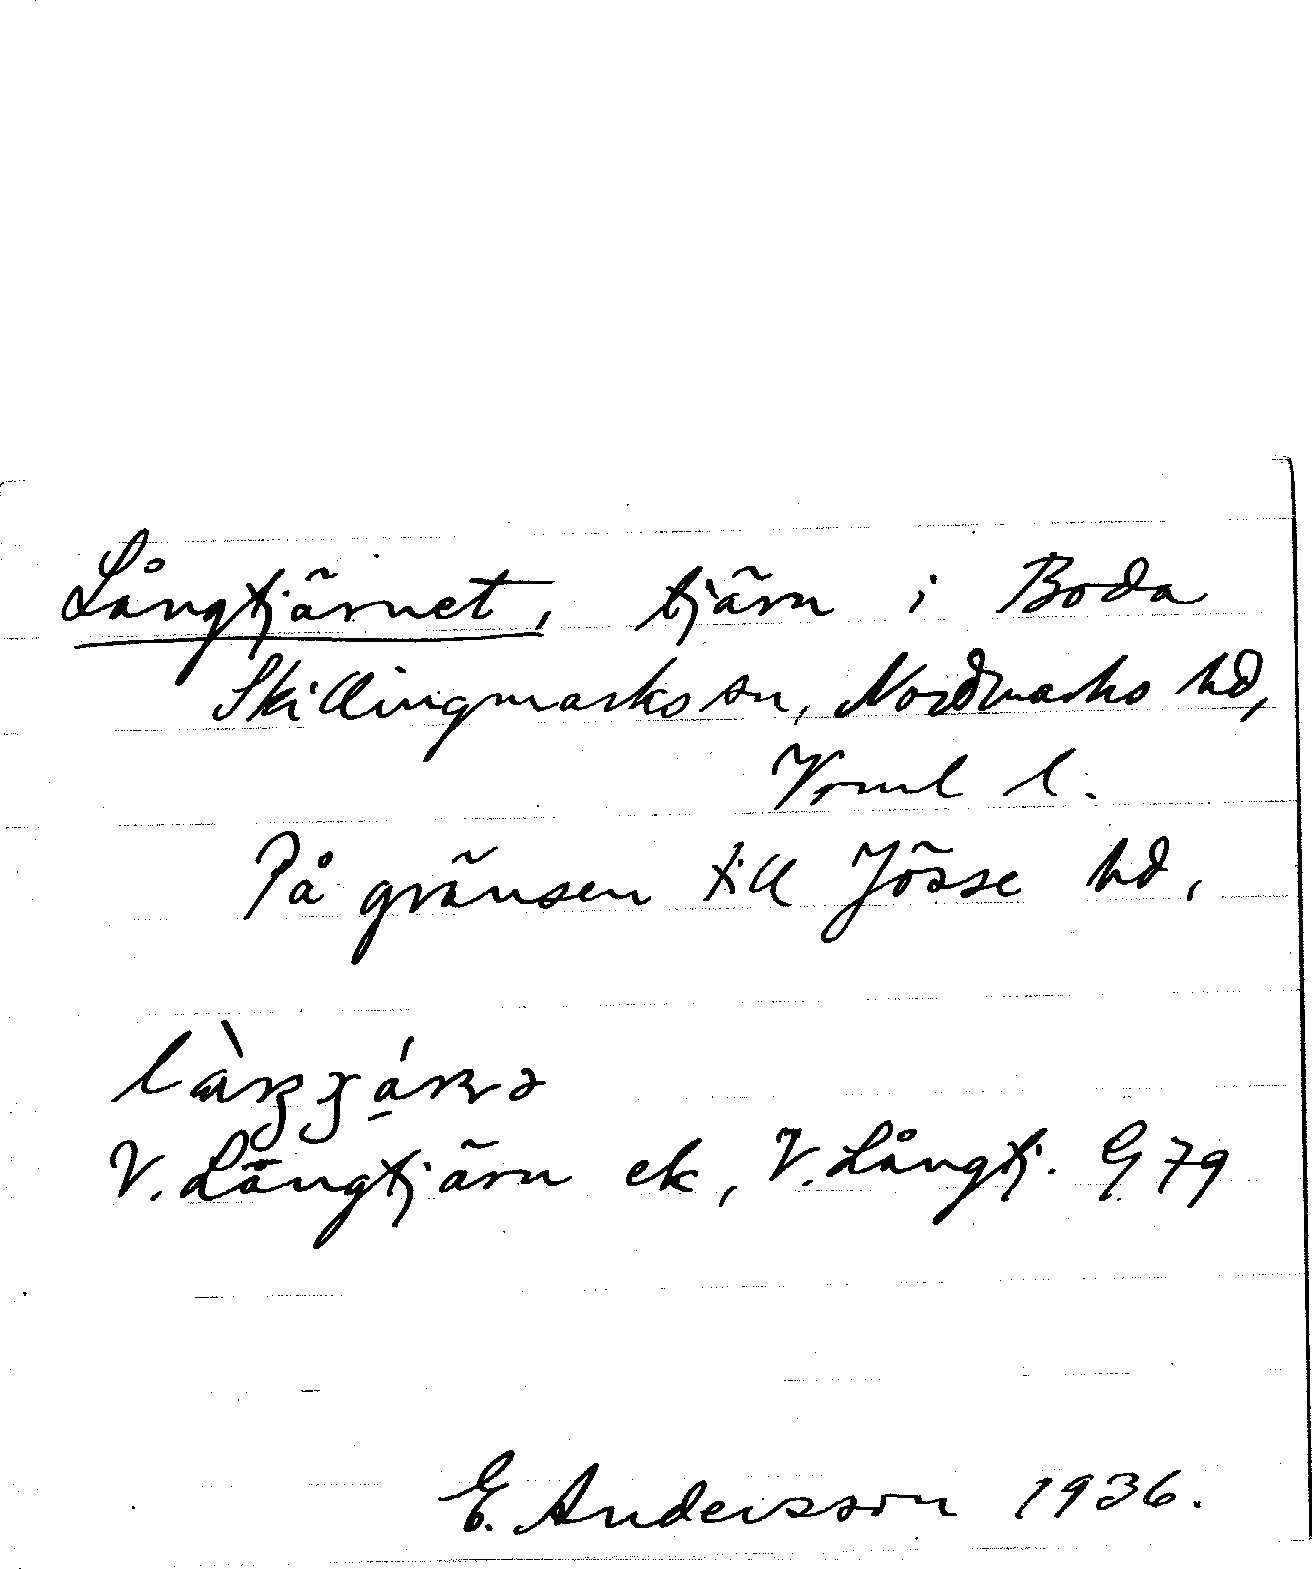 Långtjärnet, tjärn i Boda
Skillingmarks sn, Nordmarks hd,
Vrml l.
På gränsen till Jösse hd,
V. Långtjärn ek, V. Långtj. G 79
E. Andersson 1936.